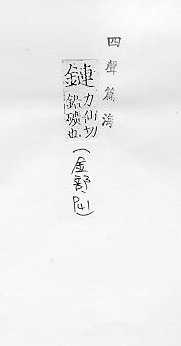 四聲篇海
鏈力仙切
鉛礦也
(金部,P41)